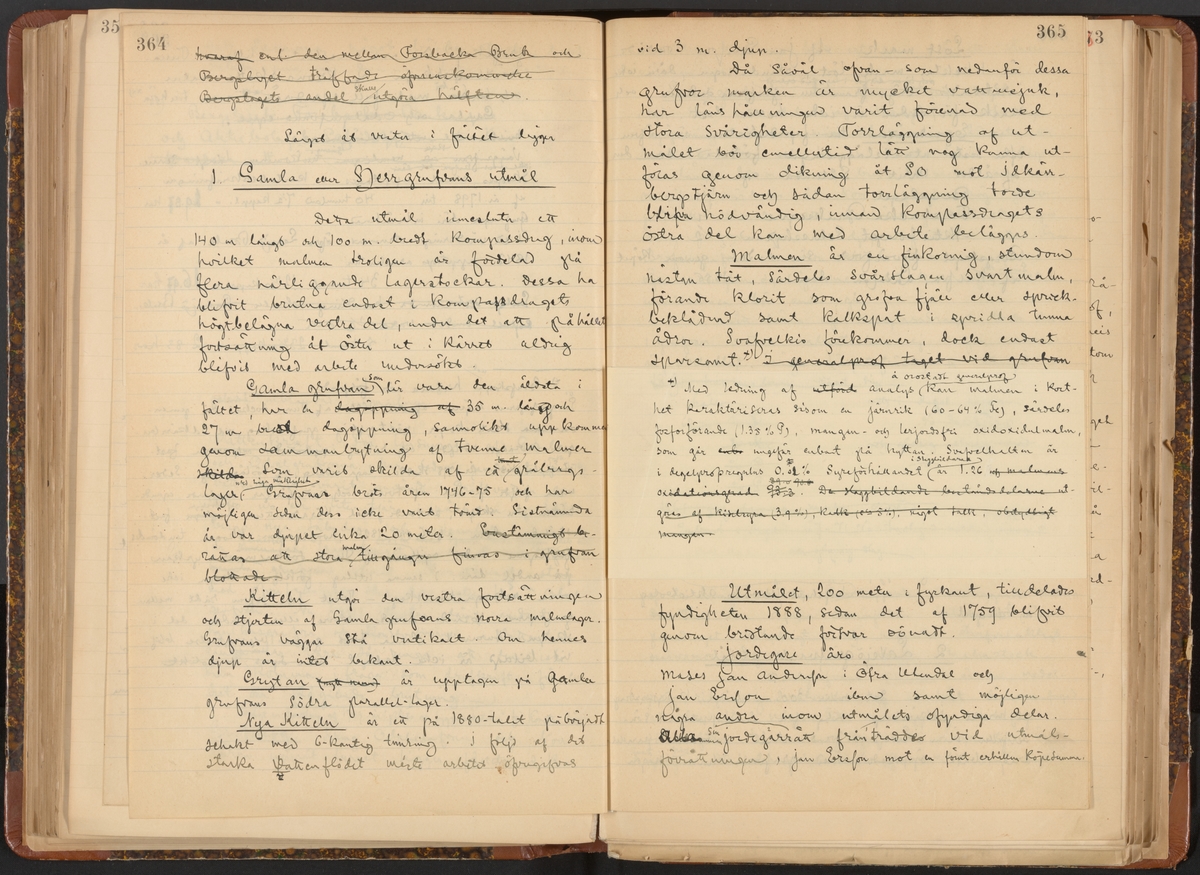 35
364
hvaraf enl. den mellan Forsbacka Bruk och
Bergslaget träffade öfverenskommelse
Bergslagets andel skulle utgöra hälften.
Längst åt vester i fältet ligger
1. Gamla eller Herrgrufvans utmål
Detta utmål innesluter ett
140 m långt och 100 m. bredt kompassdrag, inom
hvilket malmen troligen är fördelad på
flera närliggande lagerstockar. Dessa ha
blifvit brutna endast i kompassdragets
högtbelägna vestra del, under det att påhållet
fortsättning åt öster ut i kärret aldrig
blifvit med arbete undersökt.
Gamla grufvan som lär vara den äldsta i
fältet, har en dagöppning af 35 m. lång och
27 m bred dagöppning, sannolikt uppkommen
genom sammanbrytning af tvenne malmer
skilda som varit skilda af ett gråbergs-
lager. Grufvan bröts åren 1746-75 och har
möjligen sedan dess icke varit länsad. Sistnämnda
år var djupet cirka 20 meter. Enstämmigt be-
rättas att stora malmtillgångar finnas i grufvan
blottade.
Kitteln utgör den vestra fortsättningen
och stjerten af Gamla grufvans norra malmlager.
Grufvans väggar stå vertikalt. Om hennes
djup är intet bekant.
Grytan är upptagen på Gamla
grufvans Södra parallel-lager.
Nya Kitteln är ett på 1880-talet påbörjadt
schakt med 6-kantig timring. I följd af det
starka vattenflödet måste arbetet öfvergifvas
365
73
vid 3 m. djup.
Då såväl ofvan- som nedanför dessa
grufvor marken är mycket vattensjuk,
har länshållningen varit förenad med
stora svårigheter. Torrläggning af ut-
målet bör emellertid lätt nog kunna ut-
föras genom dikning åt SO mot Idkär-
bergstjärn och sådan torrläggning torde
blifva nödvändig, innan kompassdragets
östra del kan med arbete beläggas.
Malmen är en finkornig, stundom
nästan tät, särdeles svårslagen svartmalm,
förande klorit som grofva fjäll eller sprick-
beklädnad samt kalkspat i spridda tunna
ådror. Svafvelkis förekommer, dock endast
sparsamt. +) I generalprof taget vid grufvan
+) Med ledning af utförd analys å orostadt generalprof kan malmen i kort-
het karaktäriseras såsom en järnrik (60-64% Fe), särdeles
fosforförande (1.35% P), mangan- och lerjordsfri oxidoxidulmalm,
som går ungefär enbart på hyttan. Svafvelhalten är
i degelprofsregulus 0.02% Syreförhållandet i slaggbildarne är 1.26 af malmens
oxidationsgrad De slaggbildande beståndsdelarne ut-
göras af Kiselsyra (3.9%), kalk något talk, obetydligt
mangan.
Utmålet, 200 meter i fyrkant, tilldelades
fyndigheten 1888, sedan det af 1759 blifvit
genom bristande försvar sönadt.
Jordegare äro
Mases Jan Anderson i Öfra Ullendal och
Jan Ersson ibm samt möjligen
några andra inom utmålets ofyndiga delar.
Alla sin jordegarrätt frånträddes vid utmåls-
förrättningen, Jan Ersson mot en förut erhållen köpesumma.